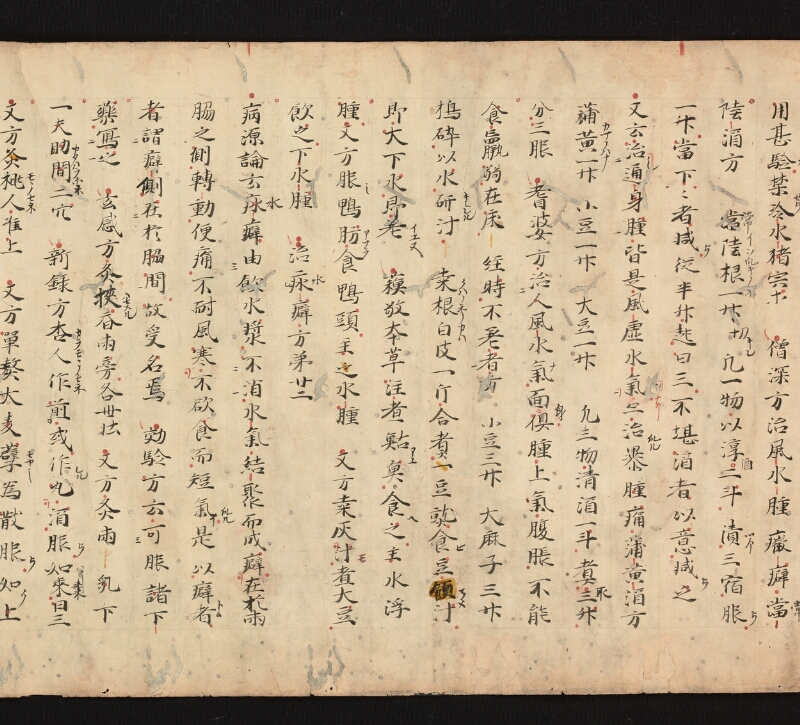 用甚驗禁冷水猪宍等 僧深方治風水腫癥癖当
陸酒方 常陸根一升切 凡一物以淳酒二斗漬三宿服
一升當下下者減從半升起日三不堪酒者以意減之
又云治通身腫皆是風虚水氣亦治暴腫痛蒲黄酒方
蒲黄一升 小豆一升 大豆一升 凡三物清酒一斗煮取三升
分三服 耆婆方治人風水氣面身俱腫上氣腹脹不能
食羸弱在床 經時不差者方 小豆三升 大麻子三升
搗碎以水研汁 桒根白皮一斤合煮豆熟食豆飲汁
即大下水即差 蘓敬本草注煮鮎魚食之主水浮
腫又方服鴨肪食鴨頭主之水腫 又方桒灰汁煮大豆
飲之下水腫 治水癖方第廿二
病源論云水癖由飲水漿不消水氣結聚而成癖在於兩
脇之側轉動便痛不耐風寒不欲食而短氣是以癖者
者謂癖側在於脇間故受名焉 効驗方云可服諸下
藥寫之 玄感方灸挾脊兩旁各卌壮 又方灸兩乳下
一夫肋間二穴 新録方杏人作煎或作丸酒服如棗日三
又方灸桃人准上 又方單熬大麦蘗為散服如上